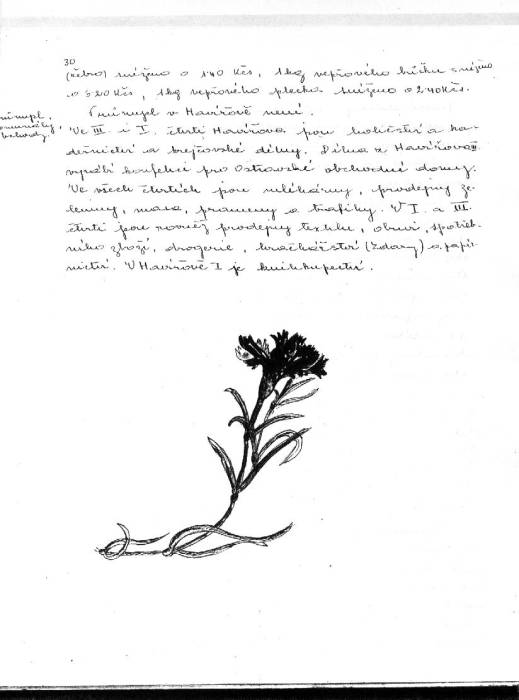 30
(žebro) sníženo o 1.40 Kčs, 1kg vepřového bůčku sníženo
o 3.20 Kčs, 1kg vepřového plecka sníženo o 2.40 Kčs.
průmysl, komunály, obchody.
Průmysl v Havířově není.
Ve III. i I. čtvrti Havířova jsou holičství a ka-
deřnictví a krejčovské dílny. Dílna z Havířova
vyrábí konfekci pro Ostravské obchodné domy.
Ve všech čtvrtích jsou mlékárny, prodejny ze-
leniny, masa, prameny a trafiky. V I. a III.
čtvrti jsou rovněž prodejny textilu, obuvi, spotřeb-
ního zboží, drogerie, hračkářství (Zdary) a papír-
nictví. V Havířově I je knihkupectví.